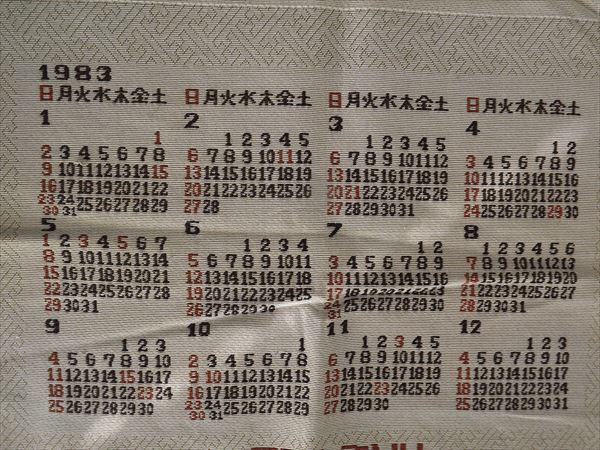 1983
日月火水木金土
1
1
2 3 4 5 6 7 8
9 10 11 12 13 14 15
16 17 18 19 20 21 22
23 24 25 26 27 28 29
30 31
日月火水木金土
2
1 2 3 4 5
6 7 8 9 10 11 12
13 14 15 16 17 18 19
20 21 22 23 24 25 26
27 28
日月火水木金土
3
1 2 3 4 5
6 7 8 9 10 11 12
13 14 15 16 17 18 19
20 21 22 23 24 25 26
27 28 29 30 31
日月火水木金土
4
1 2
3 4 5 6 7 8 9
10 11 12 13 14 15 16
17 18 19 20 21 22 23
24 25 26 27 28 29 30
5
1 2 3 4 5 6 7
8 9 10 11 12 13 14
15 16 17 18 19 20 21
22 23 24 25 26 27 28
29 30 31
6
1 2 3 4
5 6 7 8 9 10 11
12 13 14 15 16 17 18
19 20 21 22 23 24 25
26 27 28 29 30
7
1 2
3 4 5 6 7 8 9
10 11 12 13 14 15 16
17 18 19 20 21 22 23
24 25 26 27 28 29 30
31
8
1 2 3 4 5 6
7 8 9 10 11 12 13
14 15 16 17 18 19 20
21 22 23 24 25 26 27
28 29 30 31
9
1 2 3
4 5 6 7 8 9 10
11 12 13 14 15 16 17
18 19 20 21 22 23 24
25 26 27 28 29 30
10
1
2 3 4 5 6 7 8
9 10 11 12 13 14 15
16 17 18 19 20 21 22
23 24 25 26 27 28 29
30 31
11
1 2 3 4 5
6 7 8 9 10 11 12
13 14 15 16 17 18 19
20 21 22 23 24 25 26
27 28 29 30
12
1 2 3
4 5 6 7 8 9 10
11 12 13 14 15 16 17
18 19 20 21 22 23 24
25 26 27 28 29 30 31